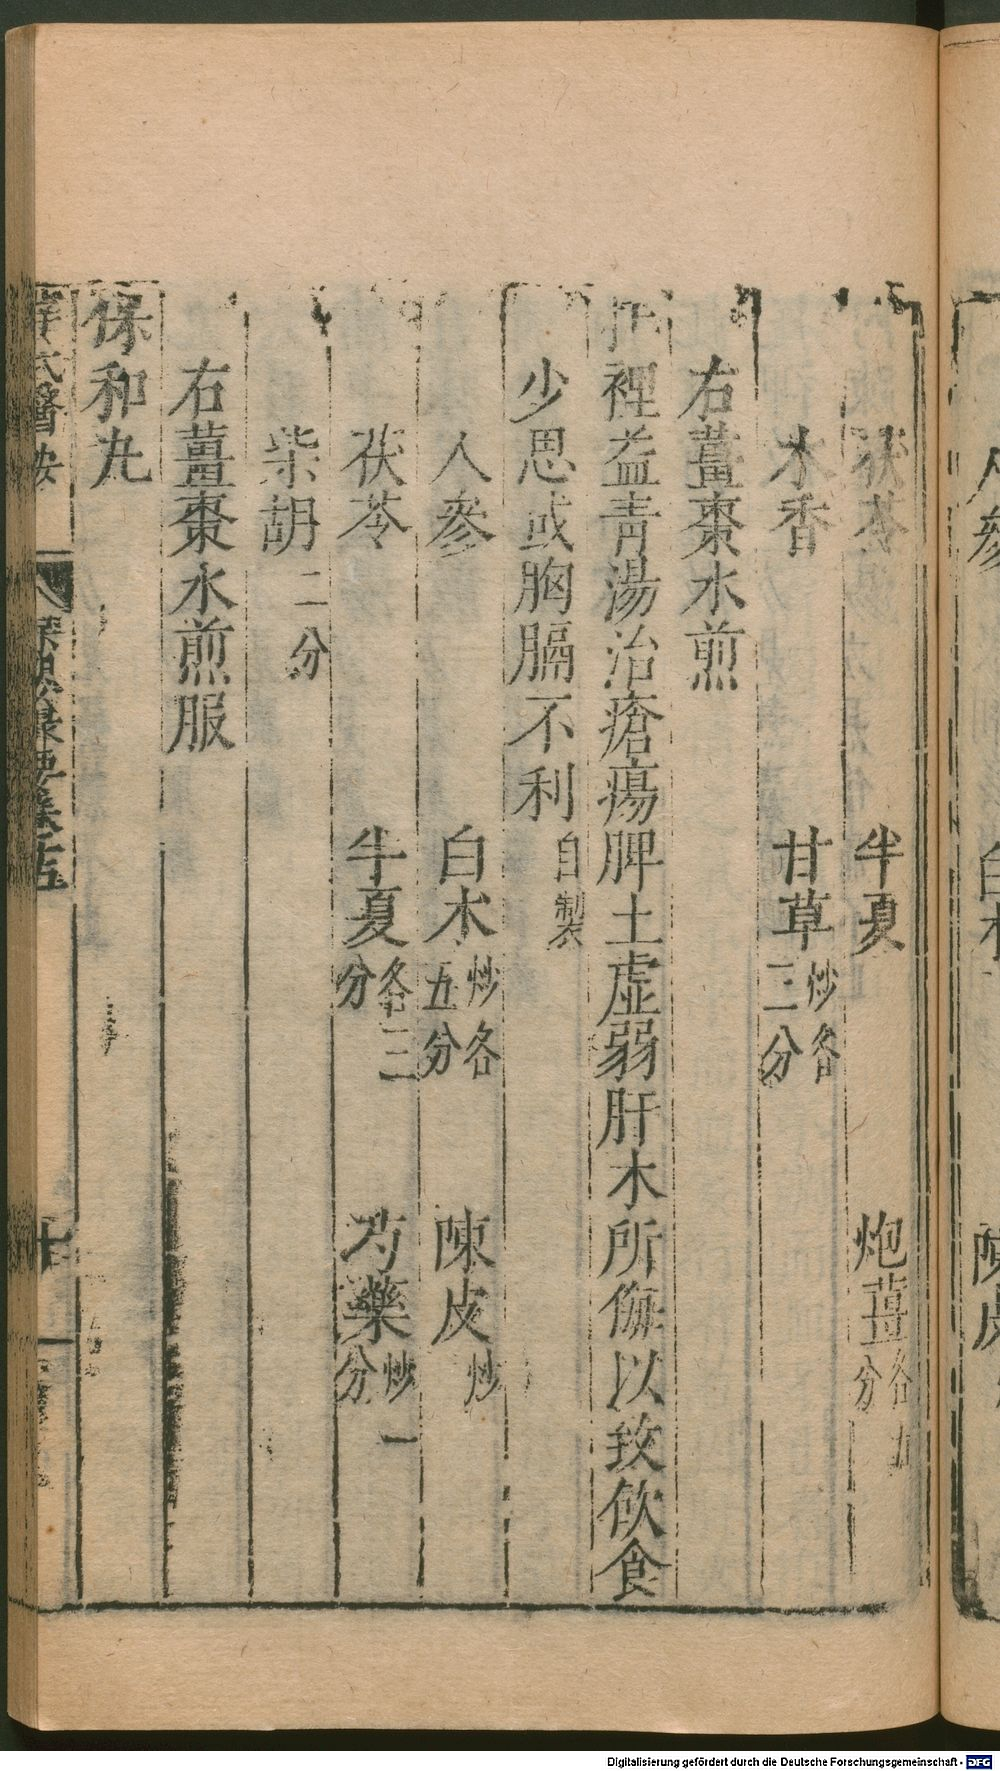 茯苓 半夏 炮薑各五分
木香 甘草炒各三分
右薑棗水煎
裡益青湯治瘡瘍脾土虛弱肝木所侮以致飲食
少思或胸膈不利自製
人參 白术炒各五分 陳皮炒
茯苓 半夏各三分 芍藥炒一分
柴胡二分
右薑棗水煎服
保和丸
氏醫按
十
人參 白术 陳皮
Digitalisierung gefördert durch die Deutsche Forschungsgemeinschaft - DFG